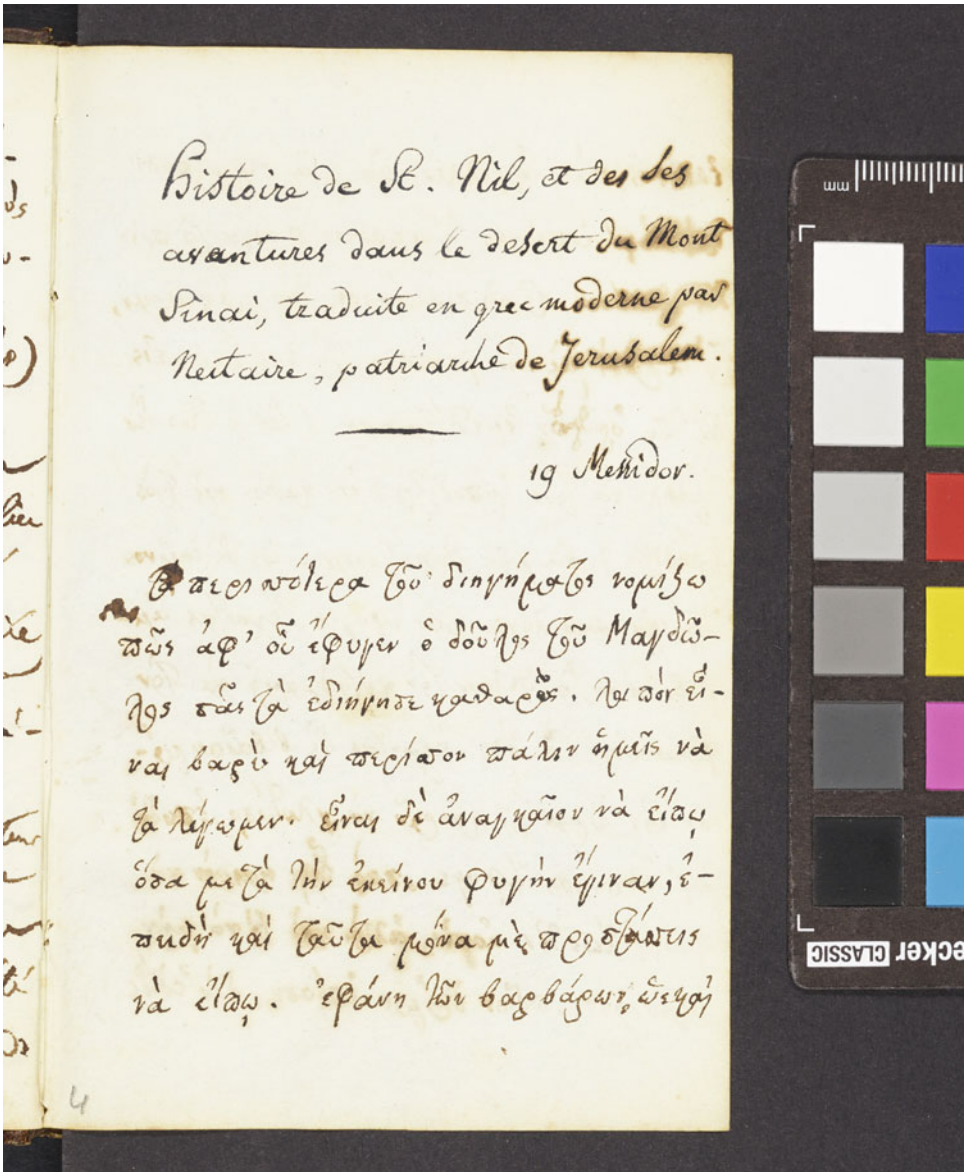 Histoire de St. Nil, et des ses
avantures dans le desert du Mont
Sinai, traduite en grec moderne par
Nectaire, patriarche de Jerusalem.
19 Messidor.
Τὰ περισσότερα τοῦ διηγήματος νομίζω
πῶς ἀφ' οὗ ἔφυγεν ὁ δοῦλος τοῦ Μαγδῶ-
λος σᾶς τὰ ἐδιήγησε καθαρῶς. λοιπὸν εἶ-
ναι βαρὺ καὶ περίσσον πάλιν ἡμεῖς νὰ
τὰ λέγωμεν. εἶναι δὲ ἀναγκαῖον νὰ εἴπω
ὅσα μετὰ τὴν ἐκείνου φυγὴν ἔγιναν, ἐ-
πειδὴ καὶ ταῦτα μόνα μὲ προστάσσεις
νὰ εἴπω. ἐφάνη τῶν βαρβάρων,
4
mm
ecker CLASSIC